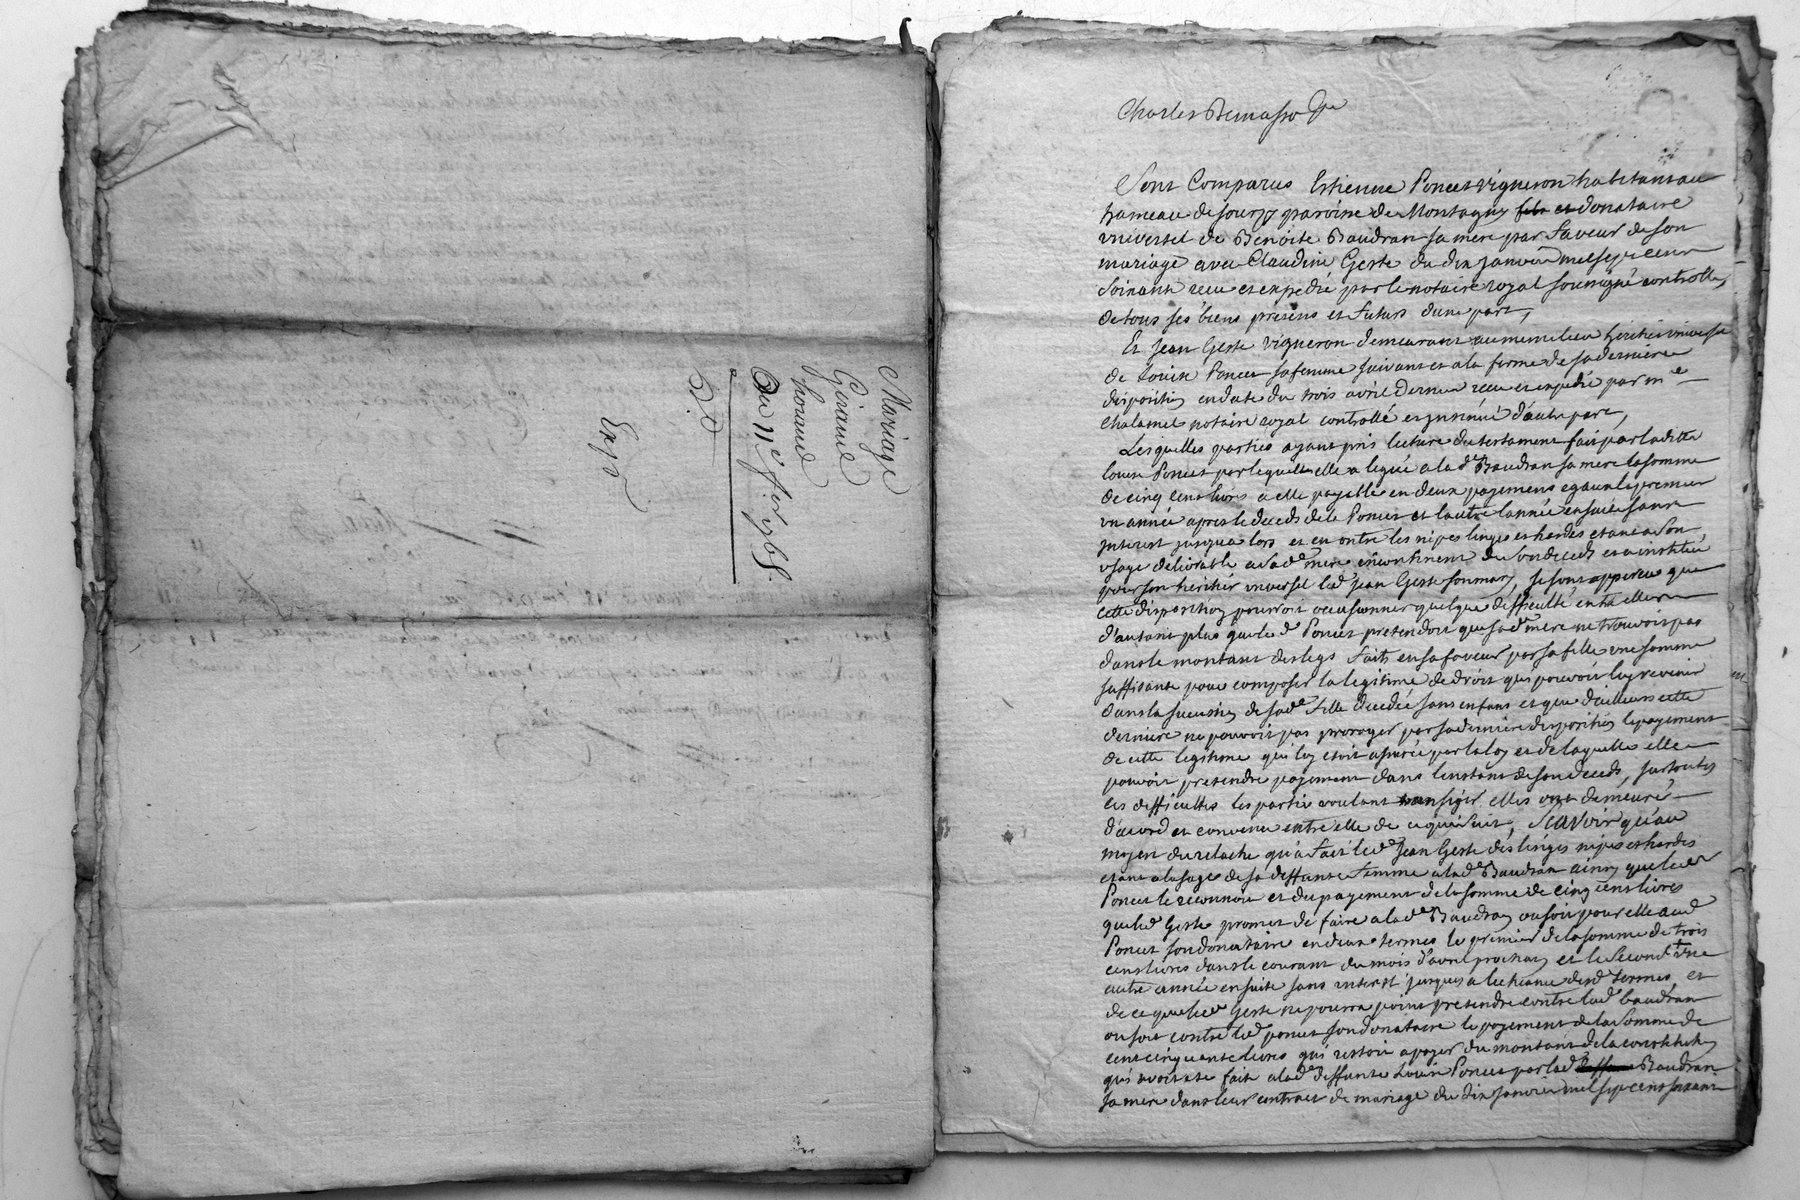 Mariage
Giraud
thoraud
Du 11e f.er 1765.
Exp.
Charles
Sont Comparus Estienne Poncet vigneron habitant au
hameau de Sourzy paroisse de Montagny fils et donataire
universel de Benoite Baudran sa mere par faveur de son
mariage avec Claudine Geste du dix janvier mil sept cent
Soixante recu et expedié par le notaire royal soussigné controllé,
de tous ses biens présens et futurs d'une part,
Et Jean Geste vigneron demeurant au meme lieu héritier universel
de Louise Poncet sa femme suivant et a la forme de sa derniere
disposition en date du trois avril dernier recu et expédié par me
Chalamel notaire royal controllé et insinué d'autre part,
Lesquelles parties ayant pris lecture du testament fait par laditte
louise Poncet par lequel elle a legué a la de Baudran sa mere la somme
de cinq cent livres a elle payable en deux payemens egaux le premier
un année apres le deceds de la Poncet et l'autre l'année ensuite sans
interest jusqu'a lors et en outre les nipes linges et hardes etant a son
usage delivrable a sa de mere incontinent de son deceds et a institué
pour son heritier universel led jean Geste son mary, se sont apperçu que
cette disposition pourroit occasionner quelque difficulté entre elles
d'autant plus que led Poncet pretendoit que sa de mere ne trouvoit pas
dans le montant des legs faits en sa faveur par sa fille une somme
suffisante pour composer la legitime de droit qui pouvoit luy revenir
dans la succession de sa de fille decedée sans enfans et que d'ailleurs cette
derniere ne pouvoit pas proroger par sa derniere disposition le payement
de cette legitime qui luy etoit assurée par la loy et de laquelle elle
pouvoit pretendre payement dans l'instant de son deceds, sur toutes
les difficultés les parties voulant transiger elles ont demeuré
d'accord et convenu entre elle de ce qui suit, SCAVOIR qu'au
moyen du relache qu'a fait led Jean Geste des linges nipes et hardes
etant a l'usage de sa deffunte femme a la de Baudran ainsy que led
Poncet le reconnoit et du payement de la somme de cinq cent livres
que led Geste promet de faire a la de Baudran ou soit pour elle aud
Poncet son donataire en deux termes le premier de la somme de trois
cens livres dans le courant du mois d'avril prochain et le second d'une
autre année ensuite sans interest jusques a l'echeance desd termes, et
de ce que led Geste ne pourra point pretendre contre lad baudran
ou soit contre led poncet son donataire le payement de la somme de
cent cinquante livres qui restoit a payer du montant de la constitution
qui avoit été fait a la de deffunte Louise Poncet par lad Baudran
sa mere dans leur contract de mariage du dix janvier mil sept cent soixante